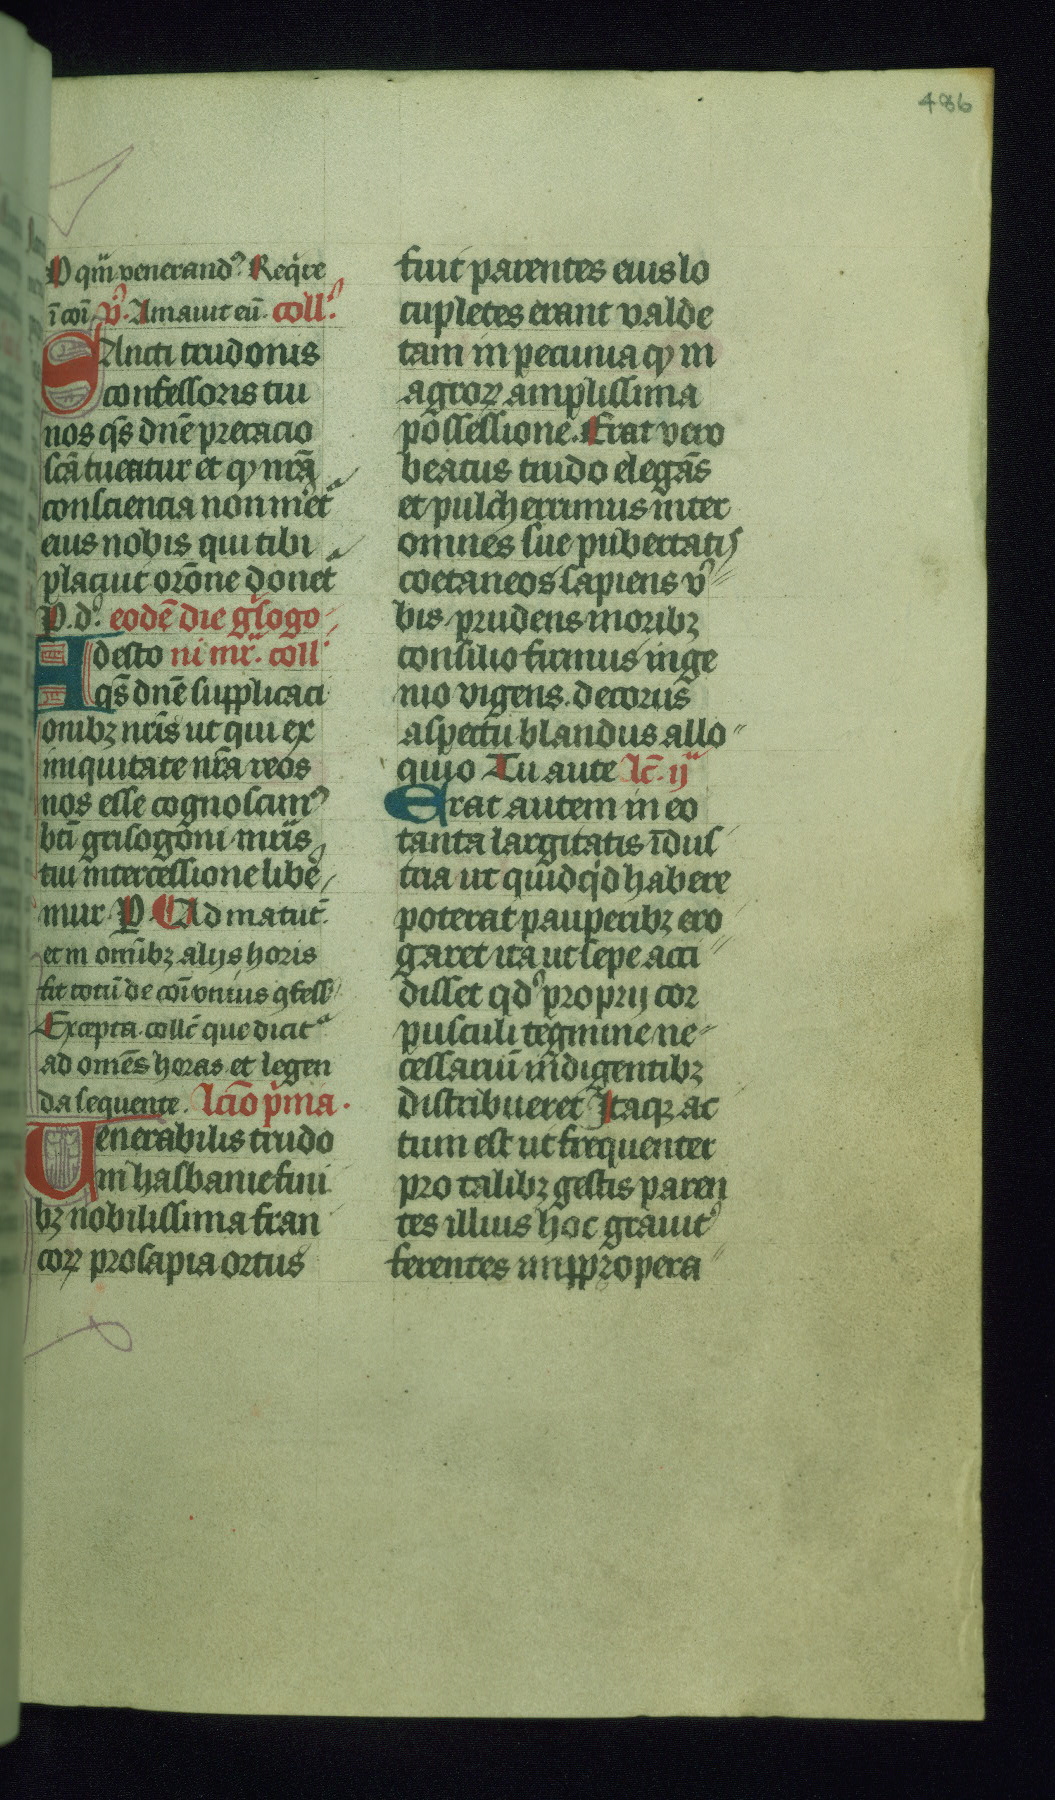 486
O qm̄ venerand9 Reqͥre
ī coī v̓. Amauit eū. coll̓.
SAncti trudonis
confessoris tui
nos qs̄ dn̄e precacio
sc̄a tueatur et qꝫ nr̄a
consciencia non m̓et
eius nobis qui tibi
placuit or̄one donet
P. d̓. eodē die g̓sogo
Adesto ni mr̄. coll̓
qs̄ dn̄e supplicaci
onibꝫ nr̄is ut qui ex
iniquitate nr̄a reos
nos esse cognoscim9
bt̄i grisogoni mr̄is
tui intercessione libe̓
mur P. Ad matut̄.
et in omībꝫ alijs horis
fit totū de coī vnius ꝯfess̓
Excepta coll̄c que dicit᷑
ad omēs horas et legen
da sequente. lcīo pͥma.
Uenerabilis trudo
in hasbanie fini
bꝫ nobilissima fran
coꝝ prosapia ortus
fuit parentes eius lo
cupletes erant valde
tam in pecunia qꝫ in
agroꝝ amplissima
possessione. Erat vero
beatus trudo elegās
et pulcherrimus inter
omnes sue pubertatis
coetaneos sapiens v̓
bis prudens moribꝫ
consilio firmus inge
nio vigens. decorus
aspectu blandus allo
quio Tu aute lc̄. ij
Erat autem in eo
tanta largitatis īdus
tria ut quidqͥd habere
poterat pauperibꝫ ero
garet ita ut sepe acci
disset qd̓ proprij cor
pusculi tegmine ne-
cessariū indigentibꝫ
distribueret Itaqꝫ ac
tum est ut frequenter
pro talibꝫ gestis paren
tes illius hoc grauit̓
ferentes impropera